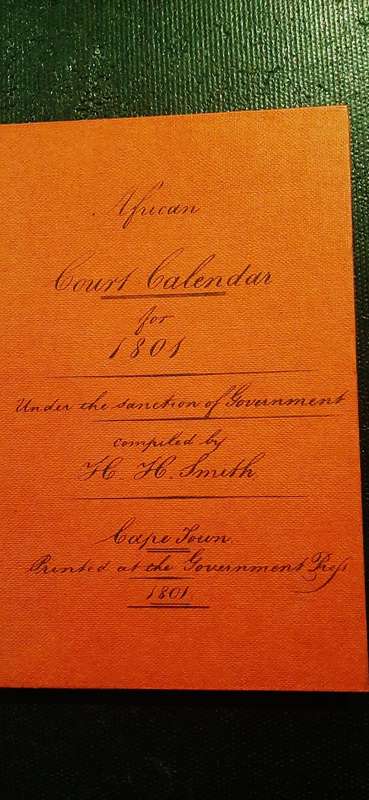 African
Court Calendar
for
1801
Under the sanction of Government
compiled by
H. H. Smith
Cape Town.
Printed at the Government Preſs
1801